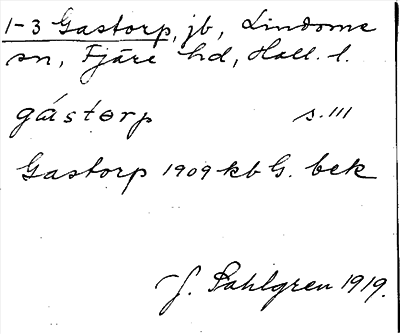 1-3 Gastorp, jb, Lindome
sn, Fjäre hd, Hall. l.
gástorp s. 111
Gastorp 1909 kb G. bek
J. Sahlgren 1919.